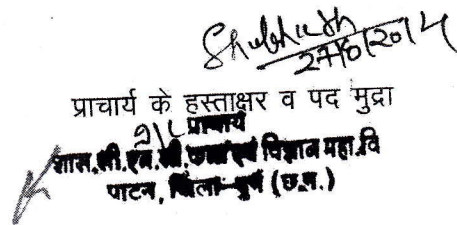 27/6/2014
प्राचार्य के हस्ताक्षर व पद मुद्रा
प्राचार्य
शास.सी.एल.सी.कला एवं विज्ञान महा.वि
पाटन, जिला-दुर्ग (छ.ग.)